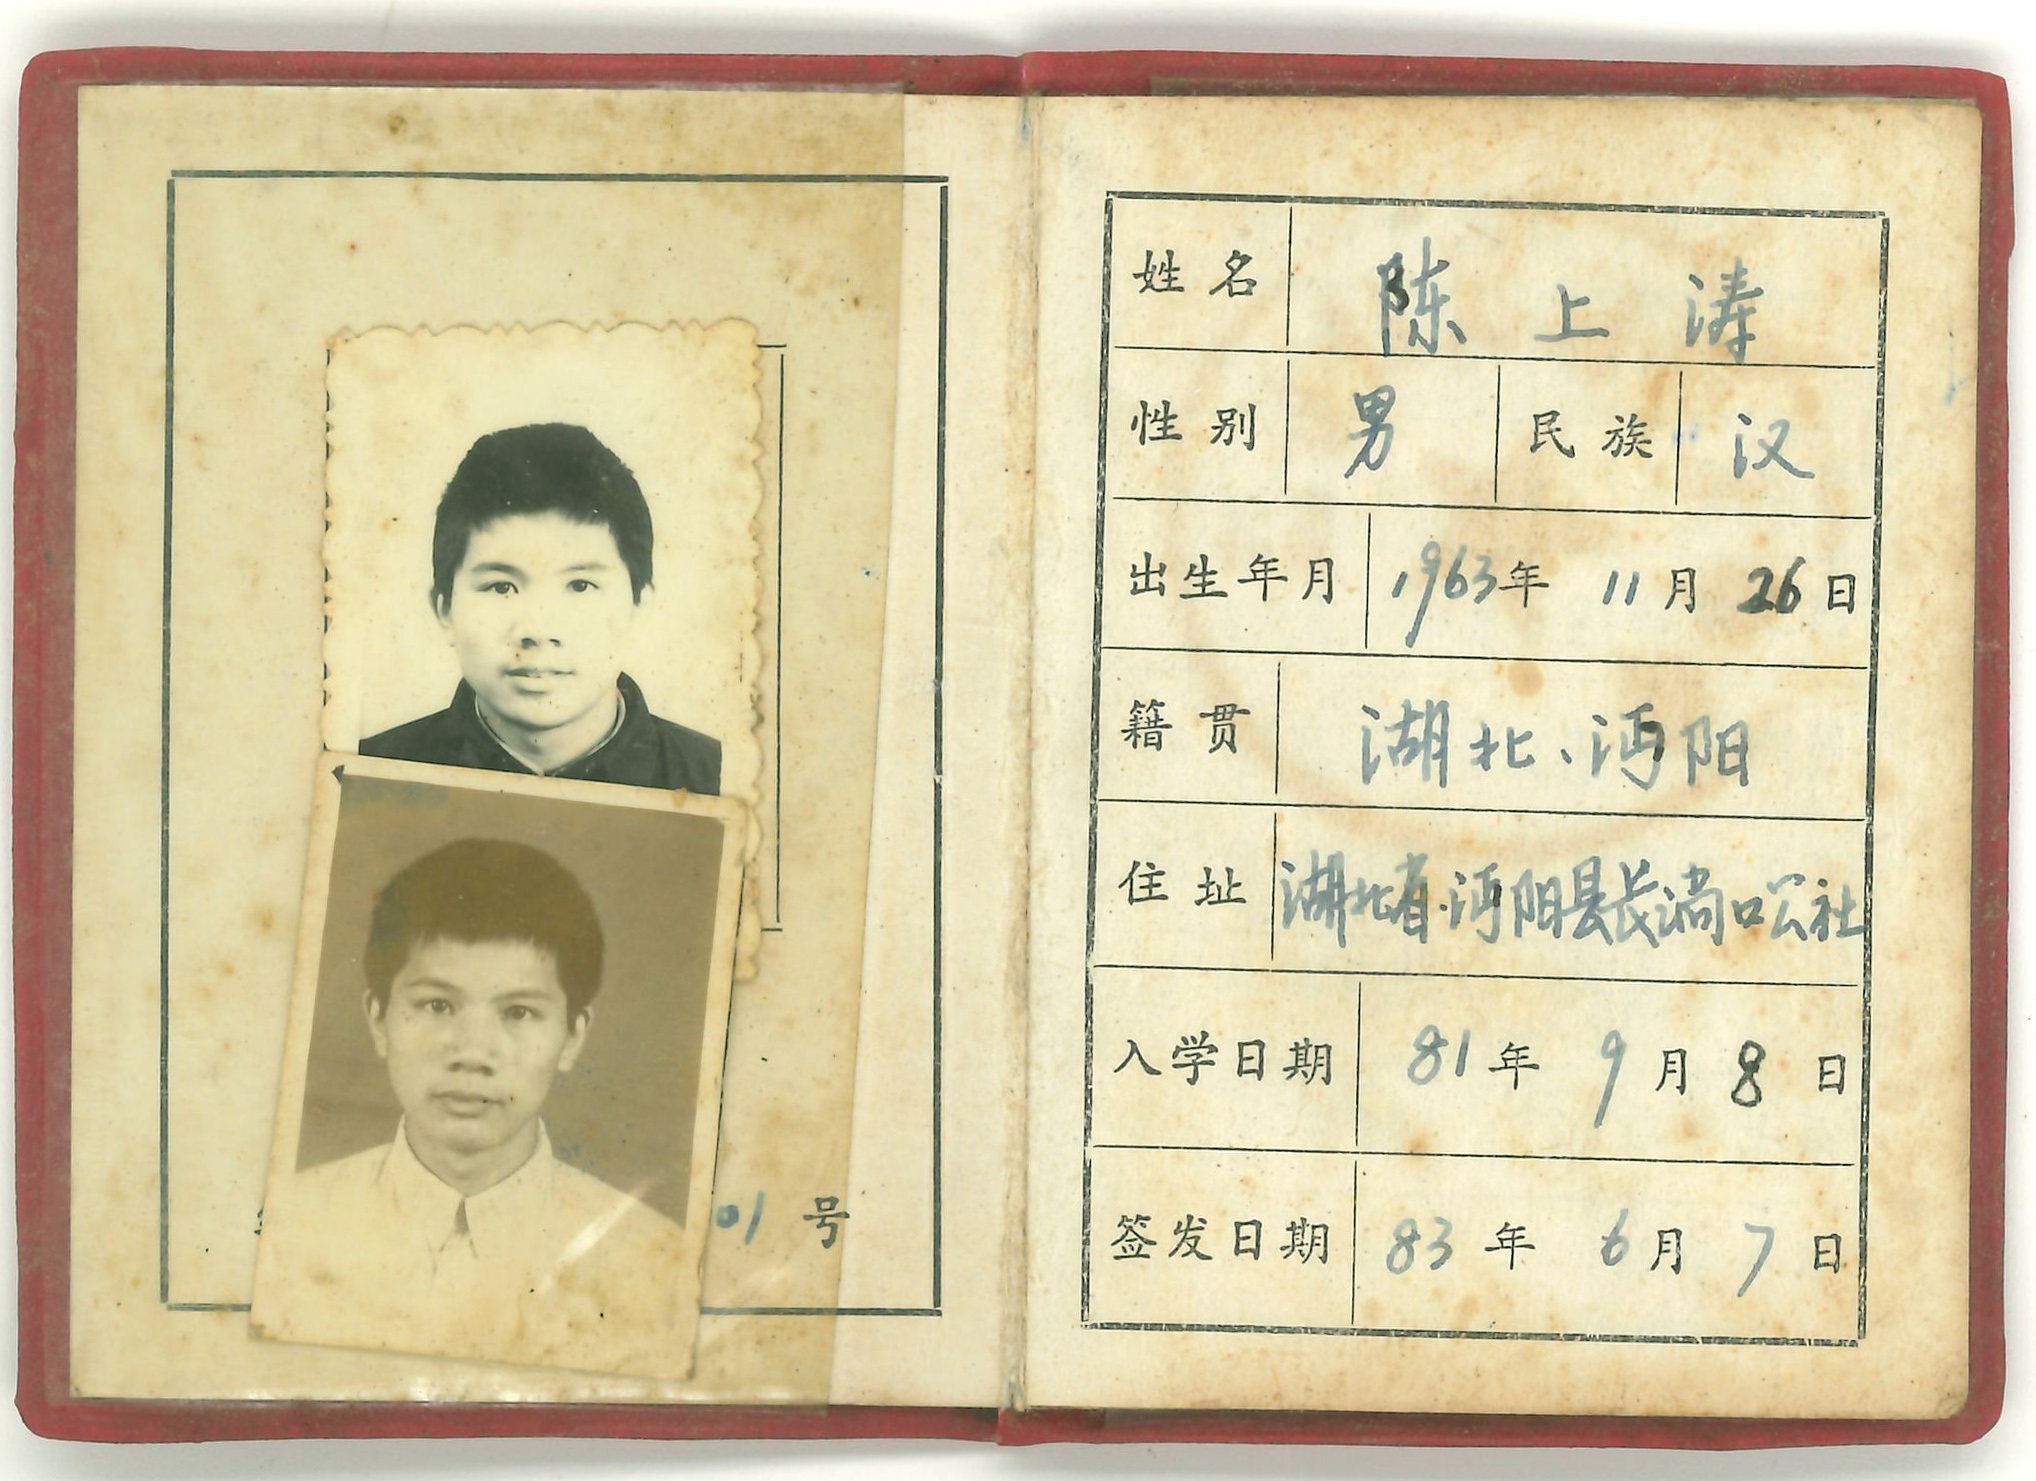 01 号
姓名 陈上涛
性别 男 民族 汉
出生年月 1963年 11月 26日
籍贯 湖北、沔阳
住址 湖北省沔阳县长淌口公社
入学日期 81年 9月 8日
签发日期 83年 6月 7日